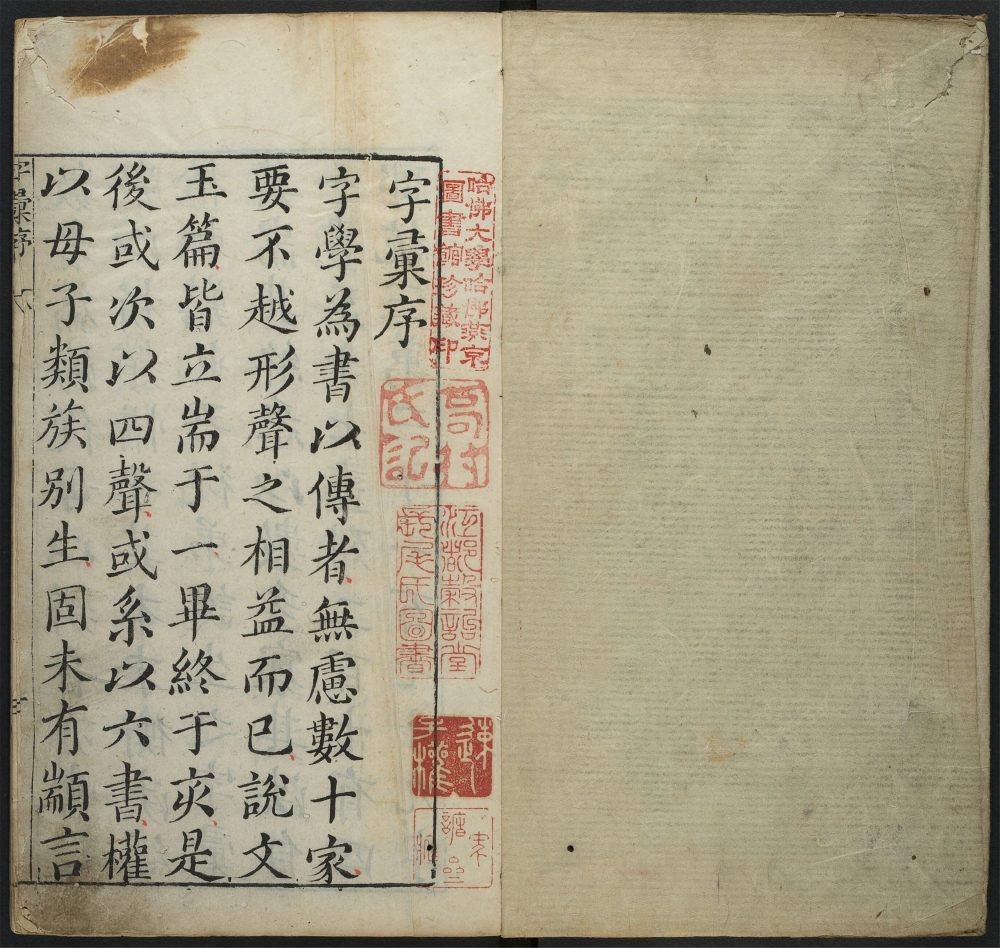 字彙序
字學為書以傳者無慮數十家
要不越形聲之相益而已說文
玉篇皆立耑于一畢終于亥是
後或次以四聲或系以六書權
以母子類族別生固未有顓言
字彙序
哈佛大學哈佛燕京
圖書館珍藏印
氏記